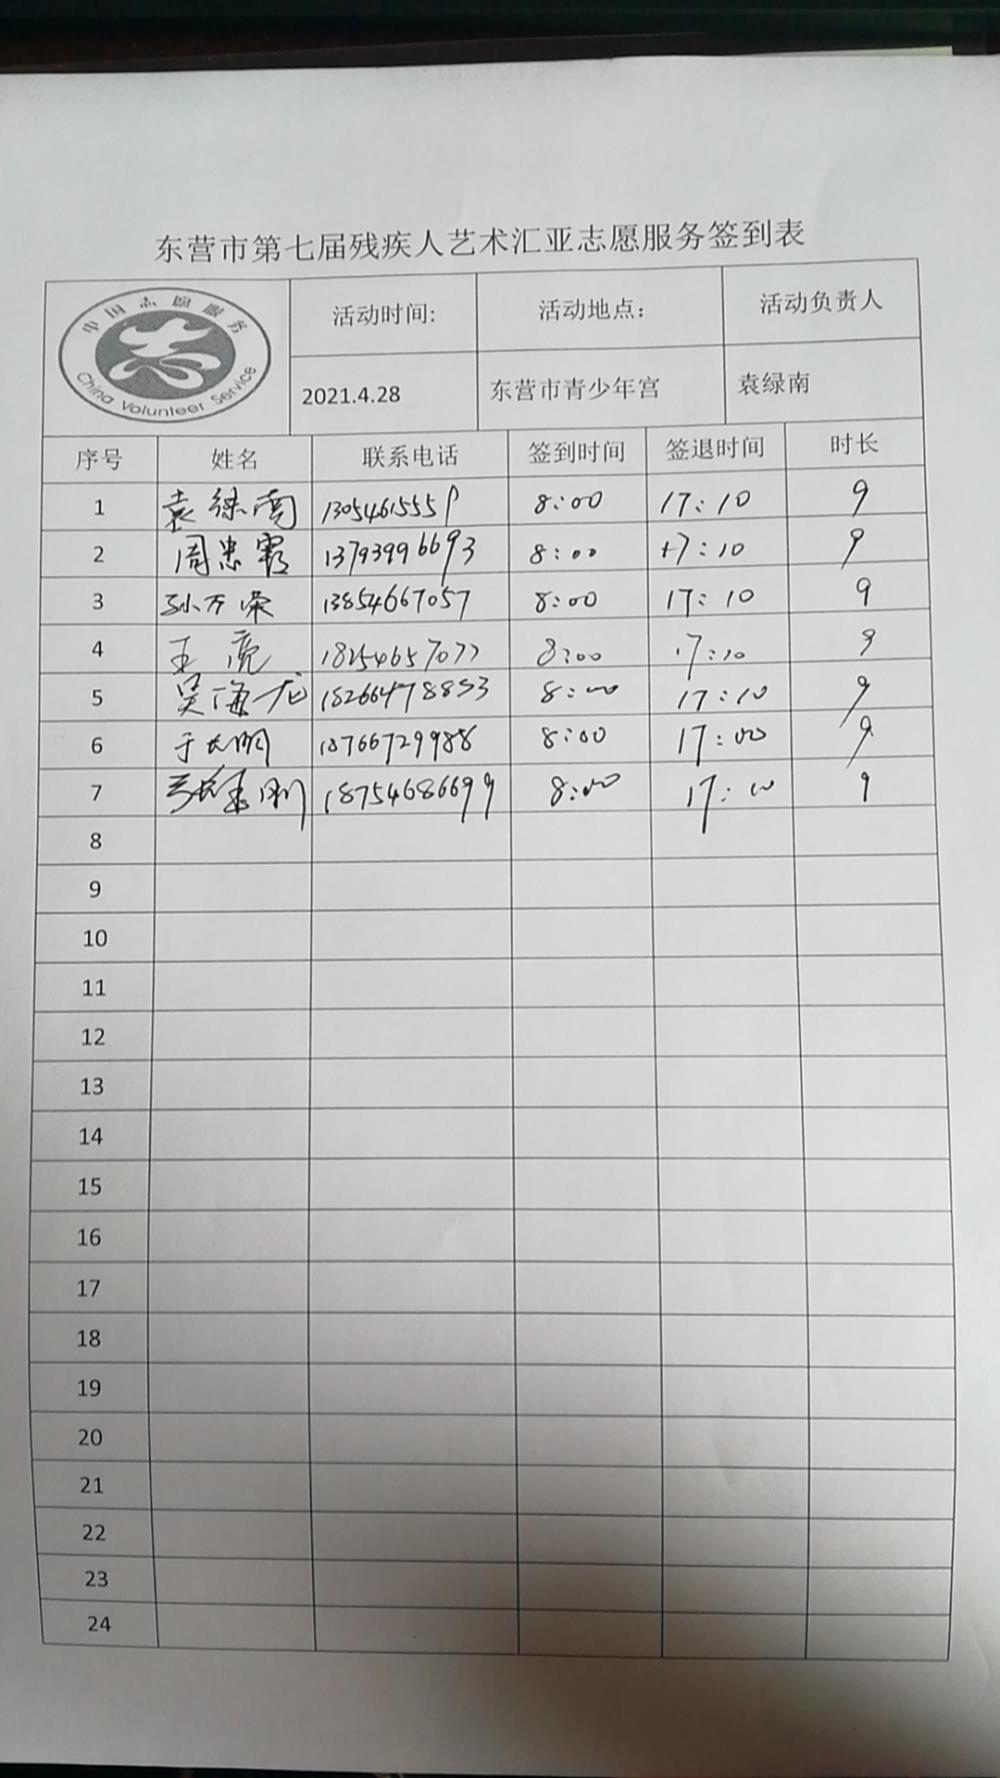 东营市第七届残疾人艺术汇亚志愿服务签到表
中国志愿服务
China Volunteer Service
活动时间: 活动地点： 活动负责人
2021.4.28 东营市青少年宫 袁绿南
序号 姓名 联系电话 签到时间 签退时间 时长
1 袁绿南 13054615559 8:00 17:10 9
2 周忠霞 13793996693 8:00 17:10 9
3 孙万荣 13854667057 8:00 17:10 9
4 王亮 18254657077 8:00 17:10 9
5 吴海龙 18266478853 8:00 17:10 9
6 于大明 18766729988 8:00 17:00 9
7 刚 18754686699 8:00 17:00 9
8
9
10
11
12
13
14
15
16
17
18
19
20
21
22
23
24